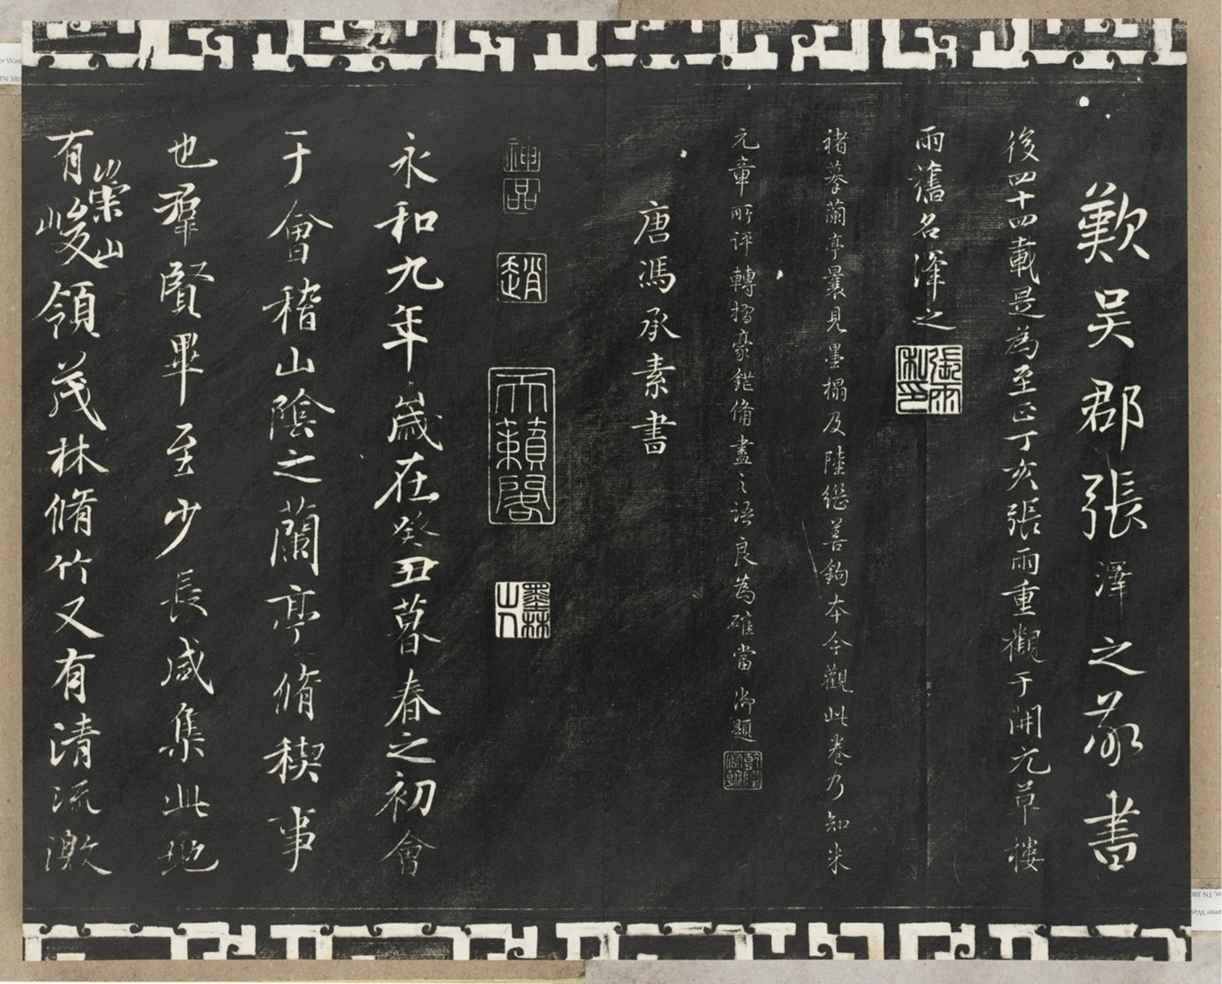 歎吳郡張澤之敬書
後四十四載是為至正丁亥張雨重觀于開元草樓
雨舊名澤之
張雨私印
褚摹蘭亭曩見墨搨及陸繼善鉤本今觀此卷乃知米
元章所評轉摺豪鋩備盡之語良為確當御題
乾隆宸翰
唐馮承素書
神品
趙
天籟閣
墨林山人
永和九年歲在癸丑暮春之初會
于會稽山陰之蘭亭脩稧事
也羣賢畢至少長咸集此地
有崇山峻領茂林脩竹又有清流激